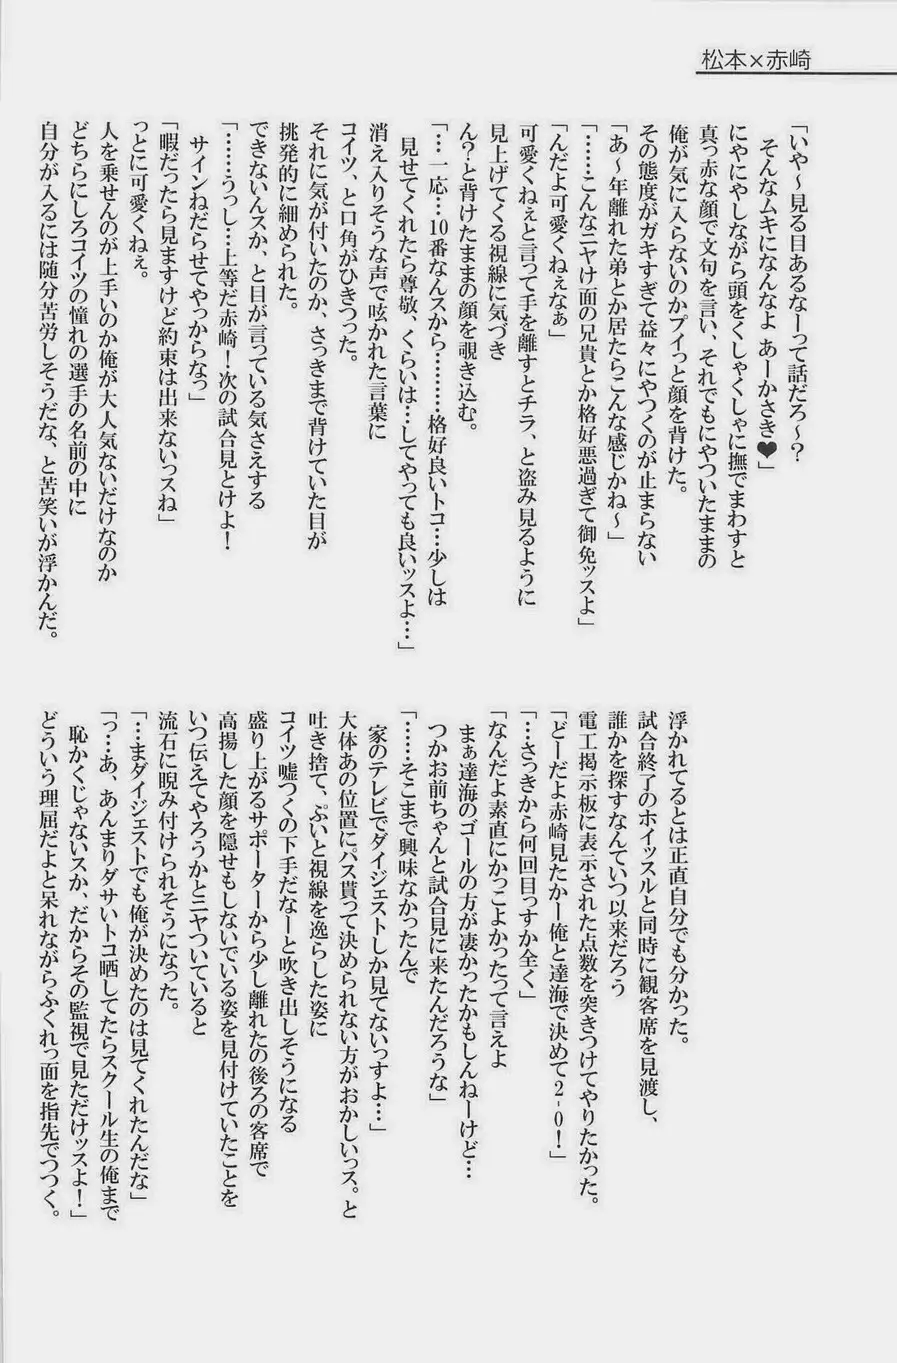 松本×赤崎
「いや～見る目あるなーって話だろ～?
そんなムキになんなよ あーかさき♥」
にやにやしながら頭をくしゃくしゃに撫でまわすと
真っ赤な顔で文句を言い、それでもにやついたままの
俺が気に入らないのかプイっと顔を背けた。
その態度がガキすぎて益々にやつくのが止まらない
「あ～年離れた弟とか居たらこんな感じかね～」
「……こんなニヤけ面の兄貴とか格好悪過ぎて御免ッスよ」
「んだよ可愛くねぇなぁ」
可愛くねぇと言って手を離すとチラ、と盗み見るように
見上げてくる視線に気づき
ん?と背けたままの顔を覗き込む。
「…一応…10番なんスから………格好良いトコ…少しは
見せてくれたら尊敬、くらいは…してやっても良いッスよ…」
消え入りそうな声で呟かれた言葉に
コイツ、と口角がひきつった。
それに気が付いたのか、さっきまで背けていた目が
挑発的に細められた。
できないんスか、と目が言っている気さえする
「……うっし…上等だ赤崎！次の試合見とけよ！
サインねだらせてやっからなっ」
「暇だったら見ますけど約束は出来ないっスね」
っとに可愛くねぇ。
人を乗せんのが上手いのか俺が大人気ないだけなのか
どちらにしろコイツの憧れの選手の名前の中に
自分が入るには随分苦労しそうだな、と苦笑いが浮かんだ。
浮かれてるとは正直自分でも分かった。
試合終了のホイッスルと同時に観客席を見渡し、
誰かを探すなんていつ以来だろう
電工掲示板に表示された点数を突きつけてやりたかった。
「どーだよ赤崎見たかー俺と達海で決めて2-0！」
「…さっきから何回目っすか全く」
「なんだよ素直にかっこよかったって言えよ
まぁ達海のゴールの方が凄かったかもしんねーけど…
つかお前ちゃんと試合見に来たんだろうな」
「……そこまで興味なかったんで
家のテレビでダイジェストしか見てないっすよ…」
大体あの位置にパス貰って決められない方がおかしいっス。と
吐き捨て、ぷいと視線を逸らした姿に
コイツ嘘つくの下手だなーと吹き出しそうになる
盛り上がるサポーターから少し離れたの後ろの客席で
高揚した顔を隠せもしないでいる姿を見付けていたことを
いつ伝えてやろうかとニヤついていると
流石に睨み付けられそうになった。
「…まダイジェストでも俺が決めたのは見てくれたんだな」
「っ…あ、あんまりダサいトコ晒してたらスクール生の俺まで
恥かくじゃないスか、だからその監視で見ただけッスよ！」
どういう理屈だよと呆れながらふくれっ面を指先でつつく。